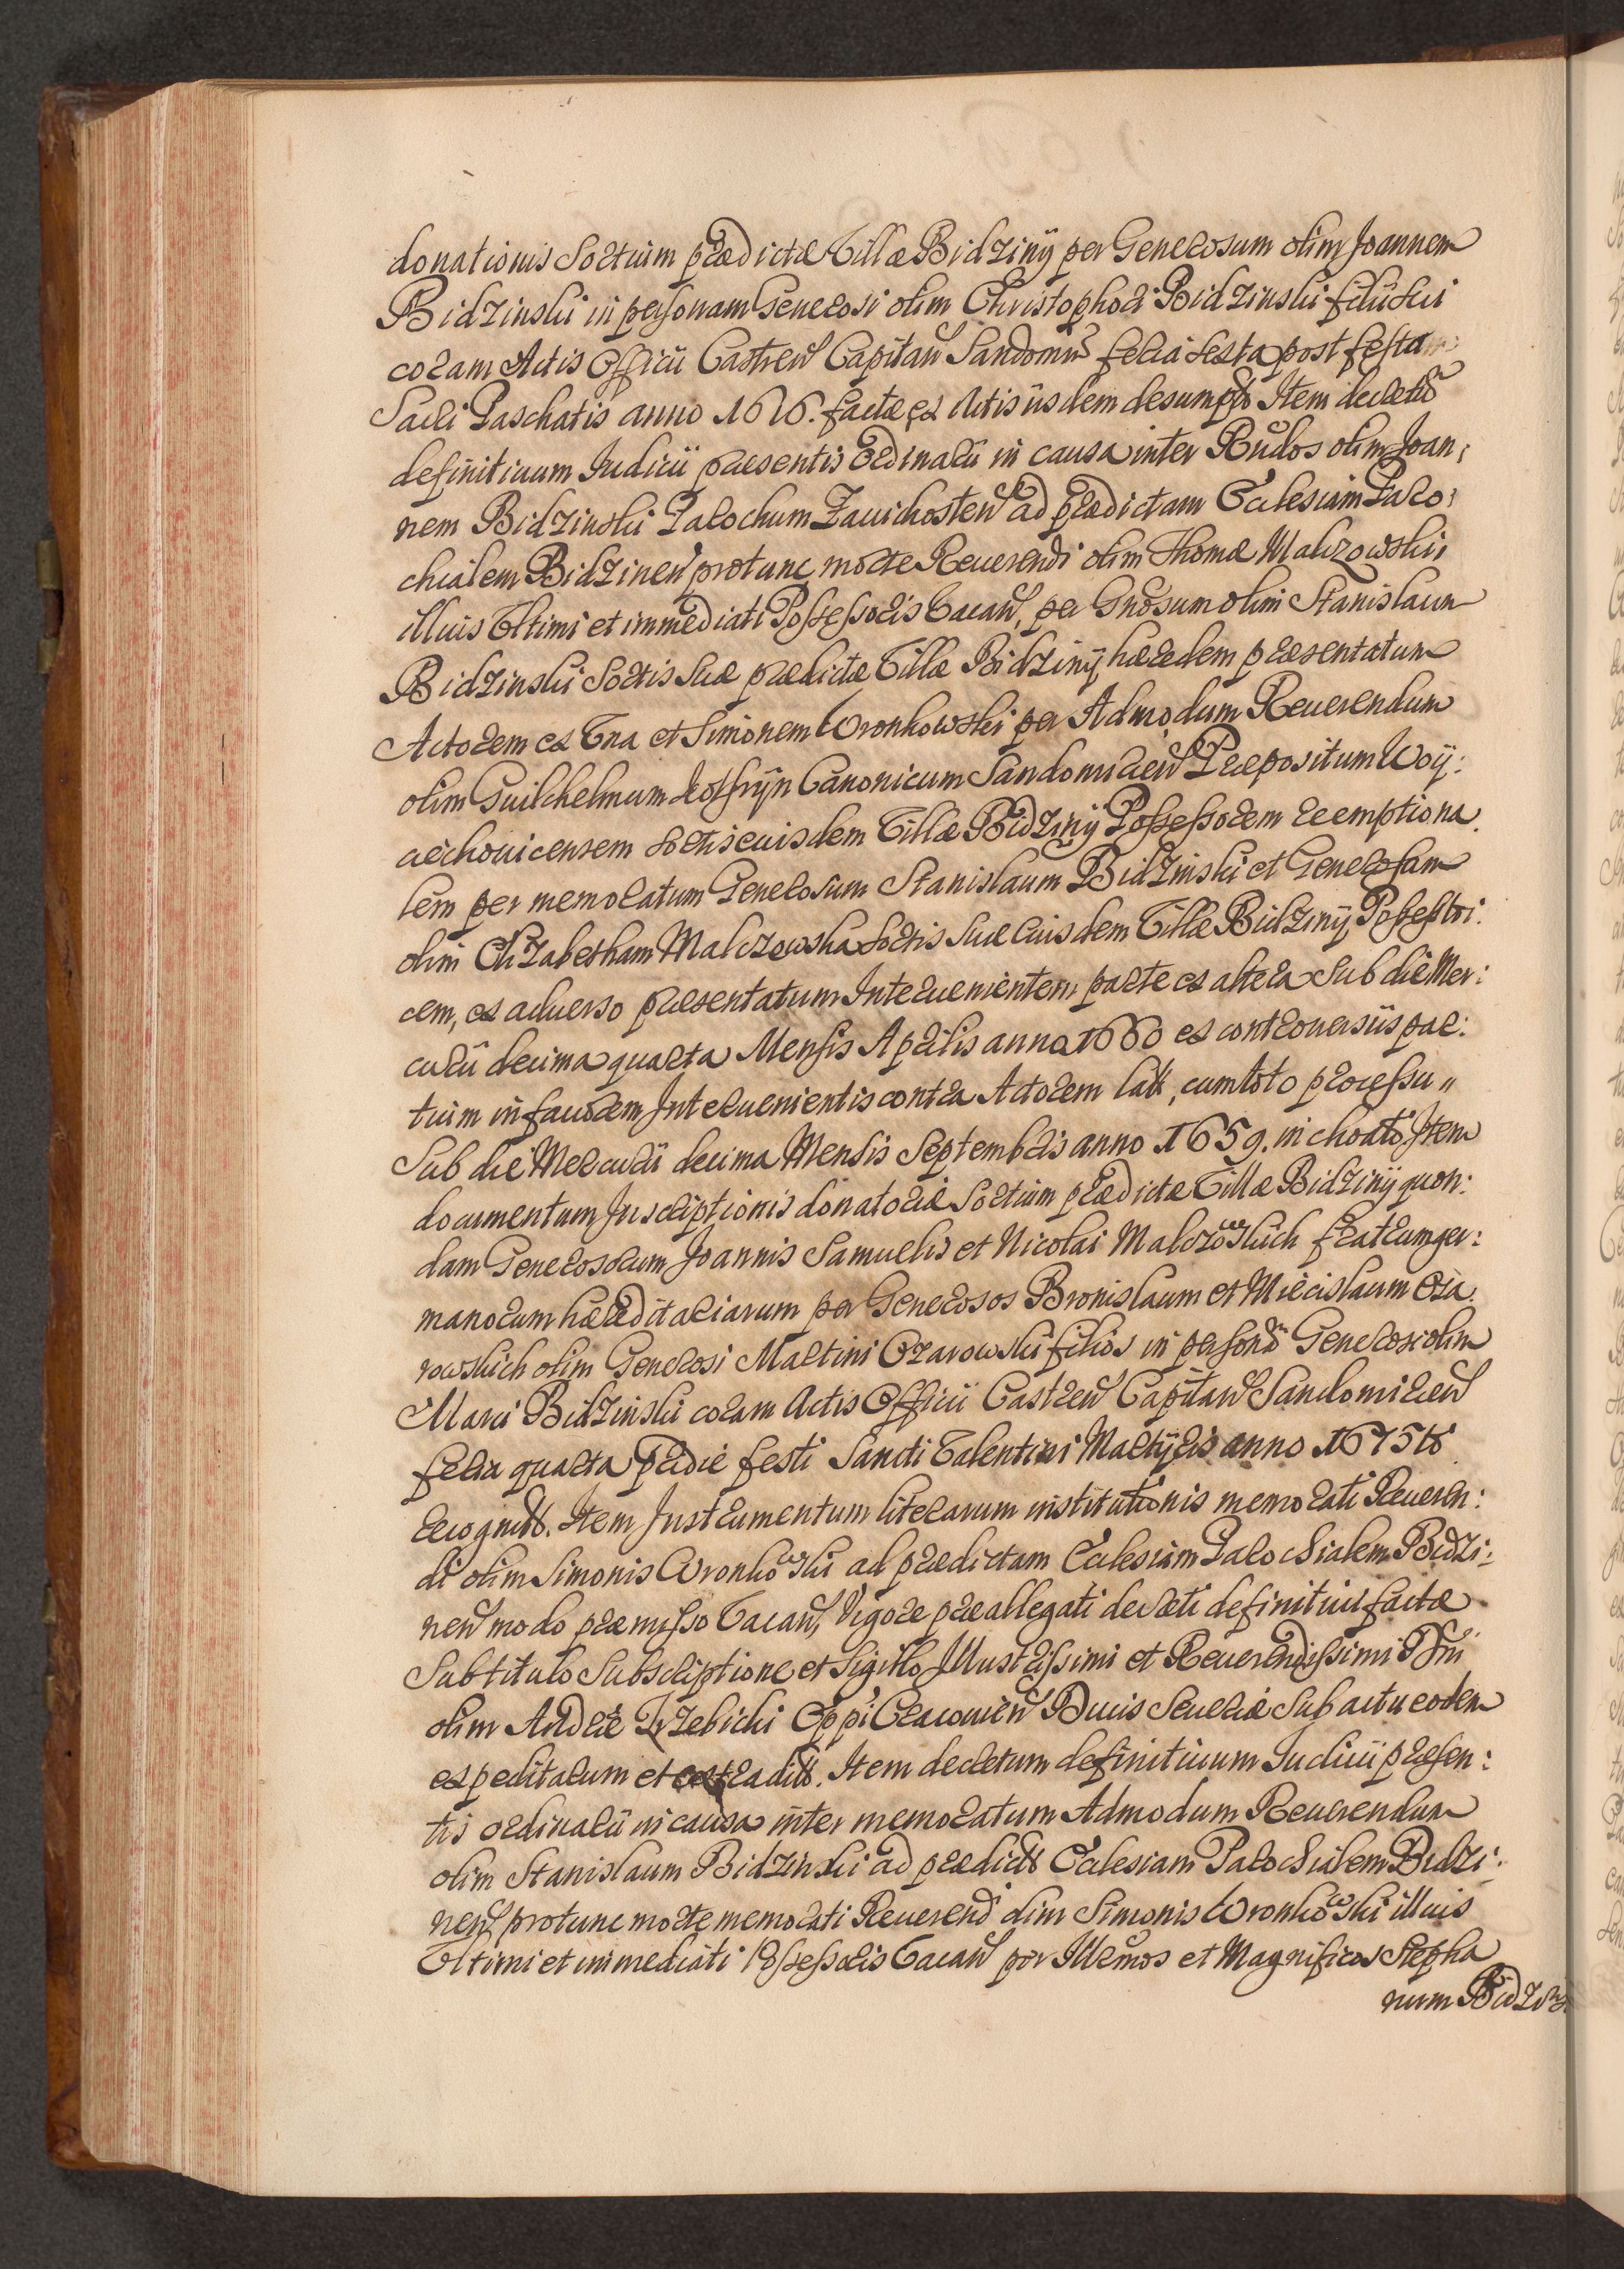 donationis Sortium prædictæ Villæ Bidziny per Generosum olim Joannem
Bidzinski in personam Generosi olim Christophori Bidzinski filii sui
coram Actis Officii Castren Capitan Sandomir feria sexta post festa
Sacri Paschatis anno 1616. factæ ex Actis iisdem desumpt Item decretu
definitiuum Judicii præsentis Ordinarii in causa inter Rndos olim Joan:
nem Bidzinski Parochum Zauichosten ad prædictam Ecclesiam Paro:
chialem Bidzinen protunc morte Reuerendi olim Thomæ Malczowski
illius Vltimi et immediati Possessoris Vacan, per Gnosum olim Stanislaum
Bidzinski Sortis suæ prædictæ Villæ Bidziny hæredem præsentatum
Actorem ex Vna et Simonem Wronkowski per Admodum Reuerendum
olim Guilchelmum Canonicum Sandomirien Præpositum Woy:
ciechouicensem sortis eiusdem Villæ Bidziny Possessorem reemptiona
lem per memoratum Generosum Stanislaum Bidzinski et Generosam
olim Elizabetham Malczowska sortis suæ eiusdem Villæ Bidziny Possestri:
cem, ex aduerso præsentatum Interuenientem parte ex altera sub die Mer:
curii decima quarta Mensis Aprilis anno 1660 ex controuersiis par:
tium in fauorem Interuenientis contra Actorem lat, cum toto processu
Sub die Mercurii decima Mensis Septembris anno 1659. inchoato Item
documentum Inscriptionis donatoriæ Sortium prædictæ Villæ Bidziny quon:
dam Generosorum Joannis Samuelis et Nicolai Malczowskich fratrum ger:
manorum hæreditariarum per Generosos Bronislaum et Miecislaum Oza
rowskich olim Generosi Martini Ozarowski filios in personam Generosi olim
Marci Bidzinski coram Actis Officii Castren Capitan Sandomirien
feria quarta pridie festi Sancti Valentini Martyris anno 1675to
recognit. Item Instrumentum literarum institutionis memorati Reueren:
di olim Simonis Wronkowski ad prædictam Ecclesiam Parochialem Bidzi:
nen modo præmisso Vacan, Vigore præallegati decreti definitiui factæ
Sub titulo Subscriptione et Sigillo Illustrissimi et Reuerendissimi Dni
olim Andreæ Trzebicki Eppi Cracouien Ducis Seueriæ Sub actu eodem
expeditarum et extradit. Item decretum definitiuum Judicii præsen:
tis ordinarii in causa inter memoratum Admodum Reuerendum
olim Stanislaum Bidzinski ad prædict Ecclesiam Parochialem Bidzi:
nen protunc morte memorati Reuerend olim Simonis Wronkowski illius
Vltimi et immediati Possessoris Vacan per Illrmos et Magnificos Stepha
num Bidzin